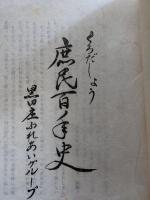 くろだしょう
庶民百年史
黒田庄ふれあいグループ